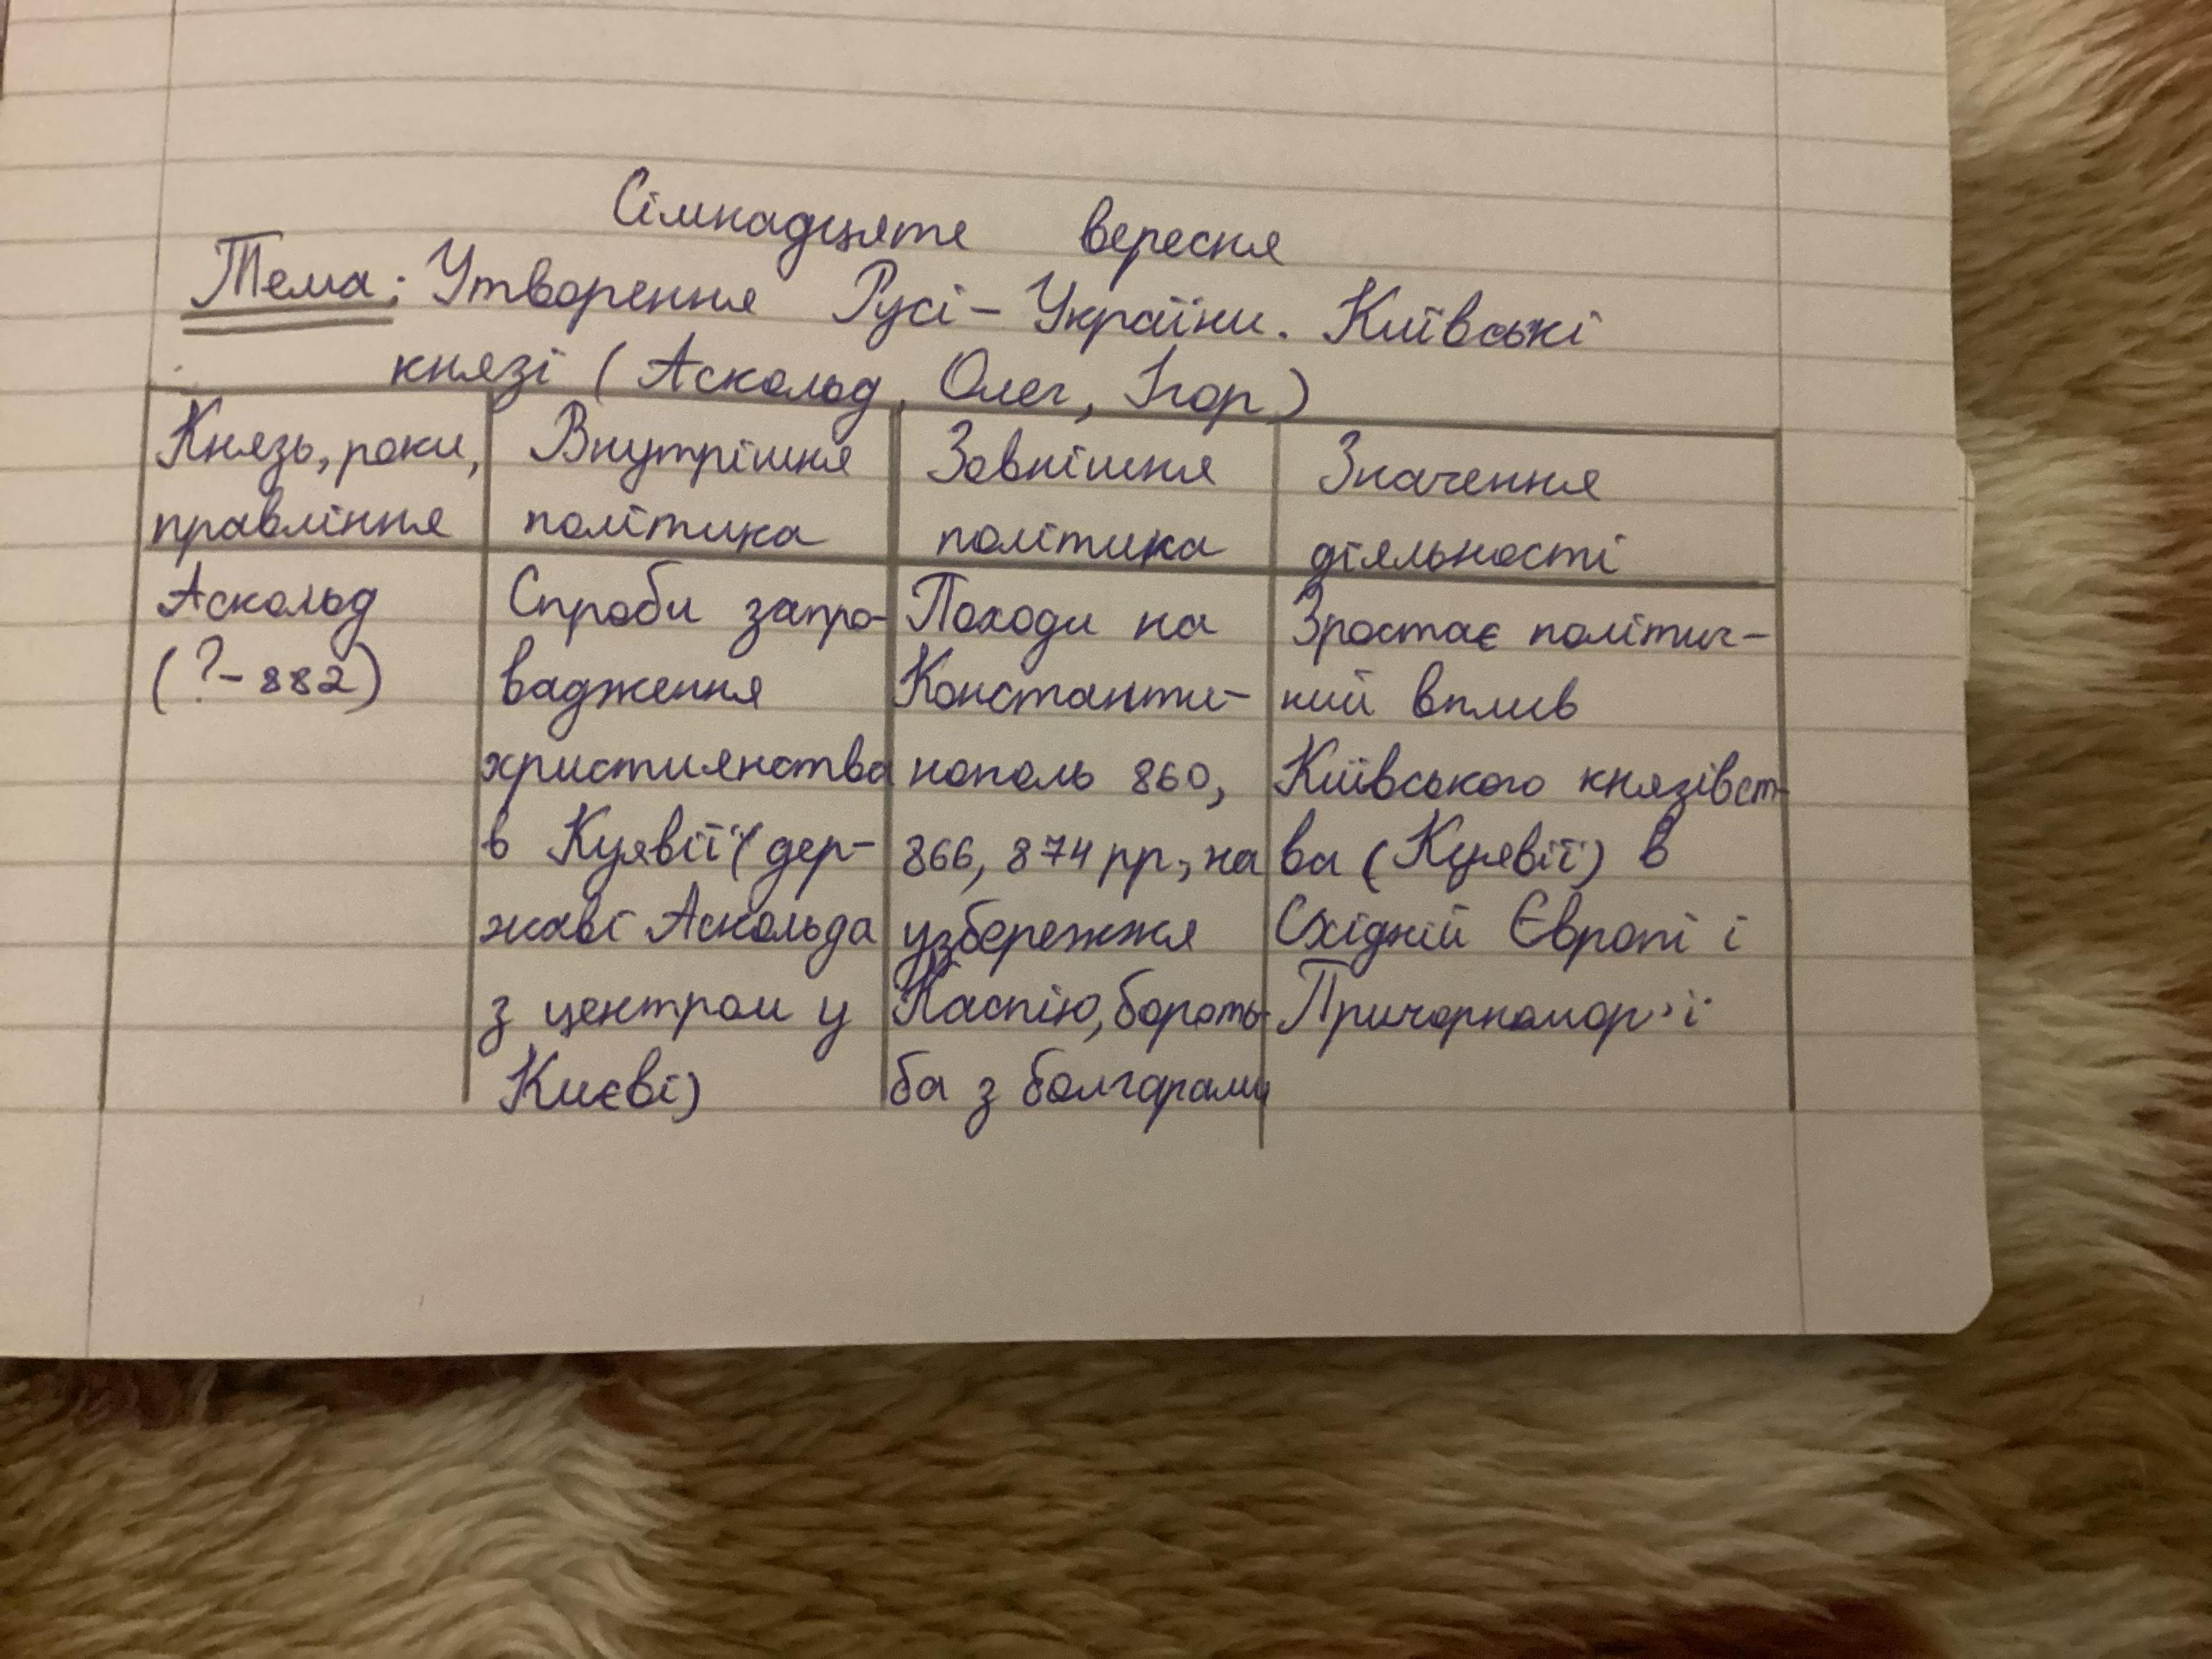 Сімнадцяте вересня
Тема: Утворення Русі – України. Київські
князі (Аскольд, Олег, Ігор)
Князь, роки,
правління
Внутрішня
політика
Зовнішня
політика
Значення
діяльності
Аскольд
(?– 882)
Спроби запро-
вадження
християнства
в Куявії (дер-
жаві Аскольда
з центром у
Києві)
Походи на
Константи-
нополь 860,
866, 874 рр, на
узбережжя
Каспію, бороть-
ба з болгарами
Зростає політич-
ний вплив
Київського князівст-
ва (Куявії) в
Східній Європі і
Причорномор'ї